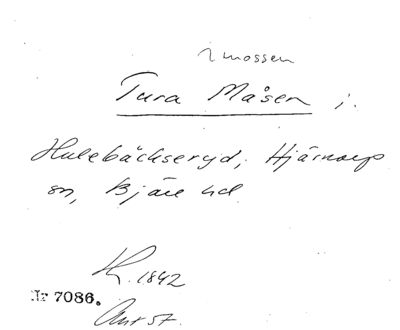 mossen
Tura Måsen i
Hulebäckseryd, Hjärnarp
sn, Bjäre hd
1842
Nr 7086.